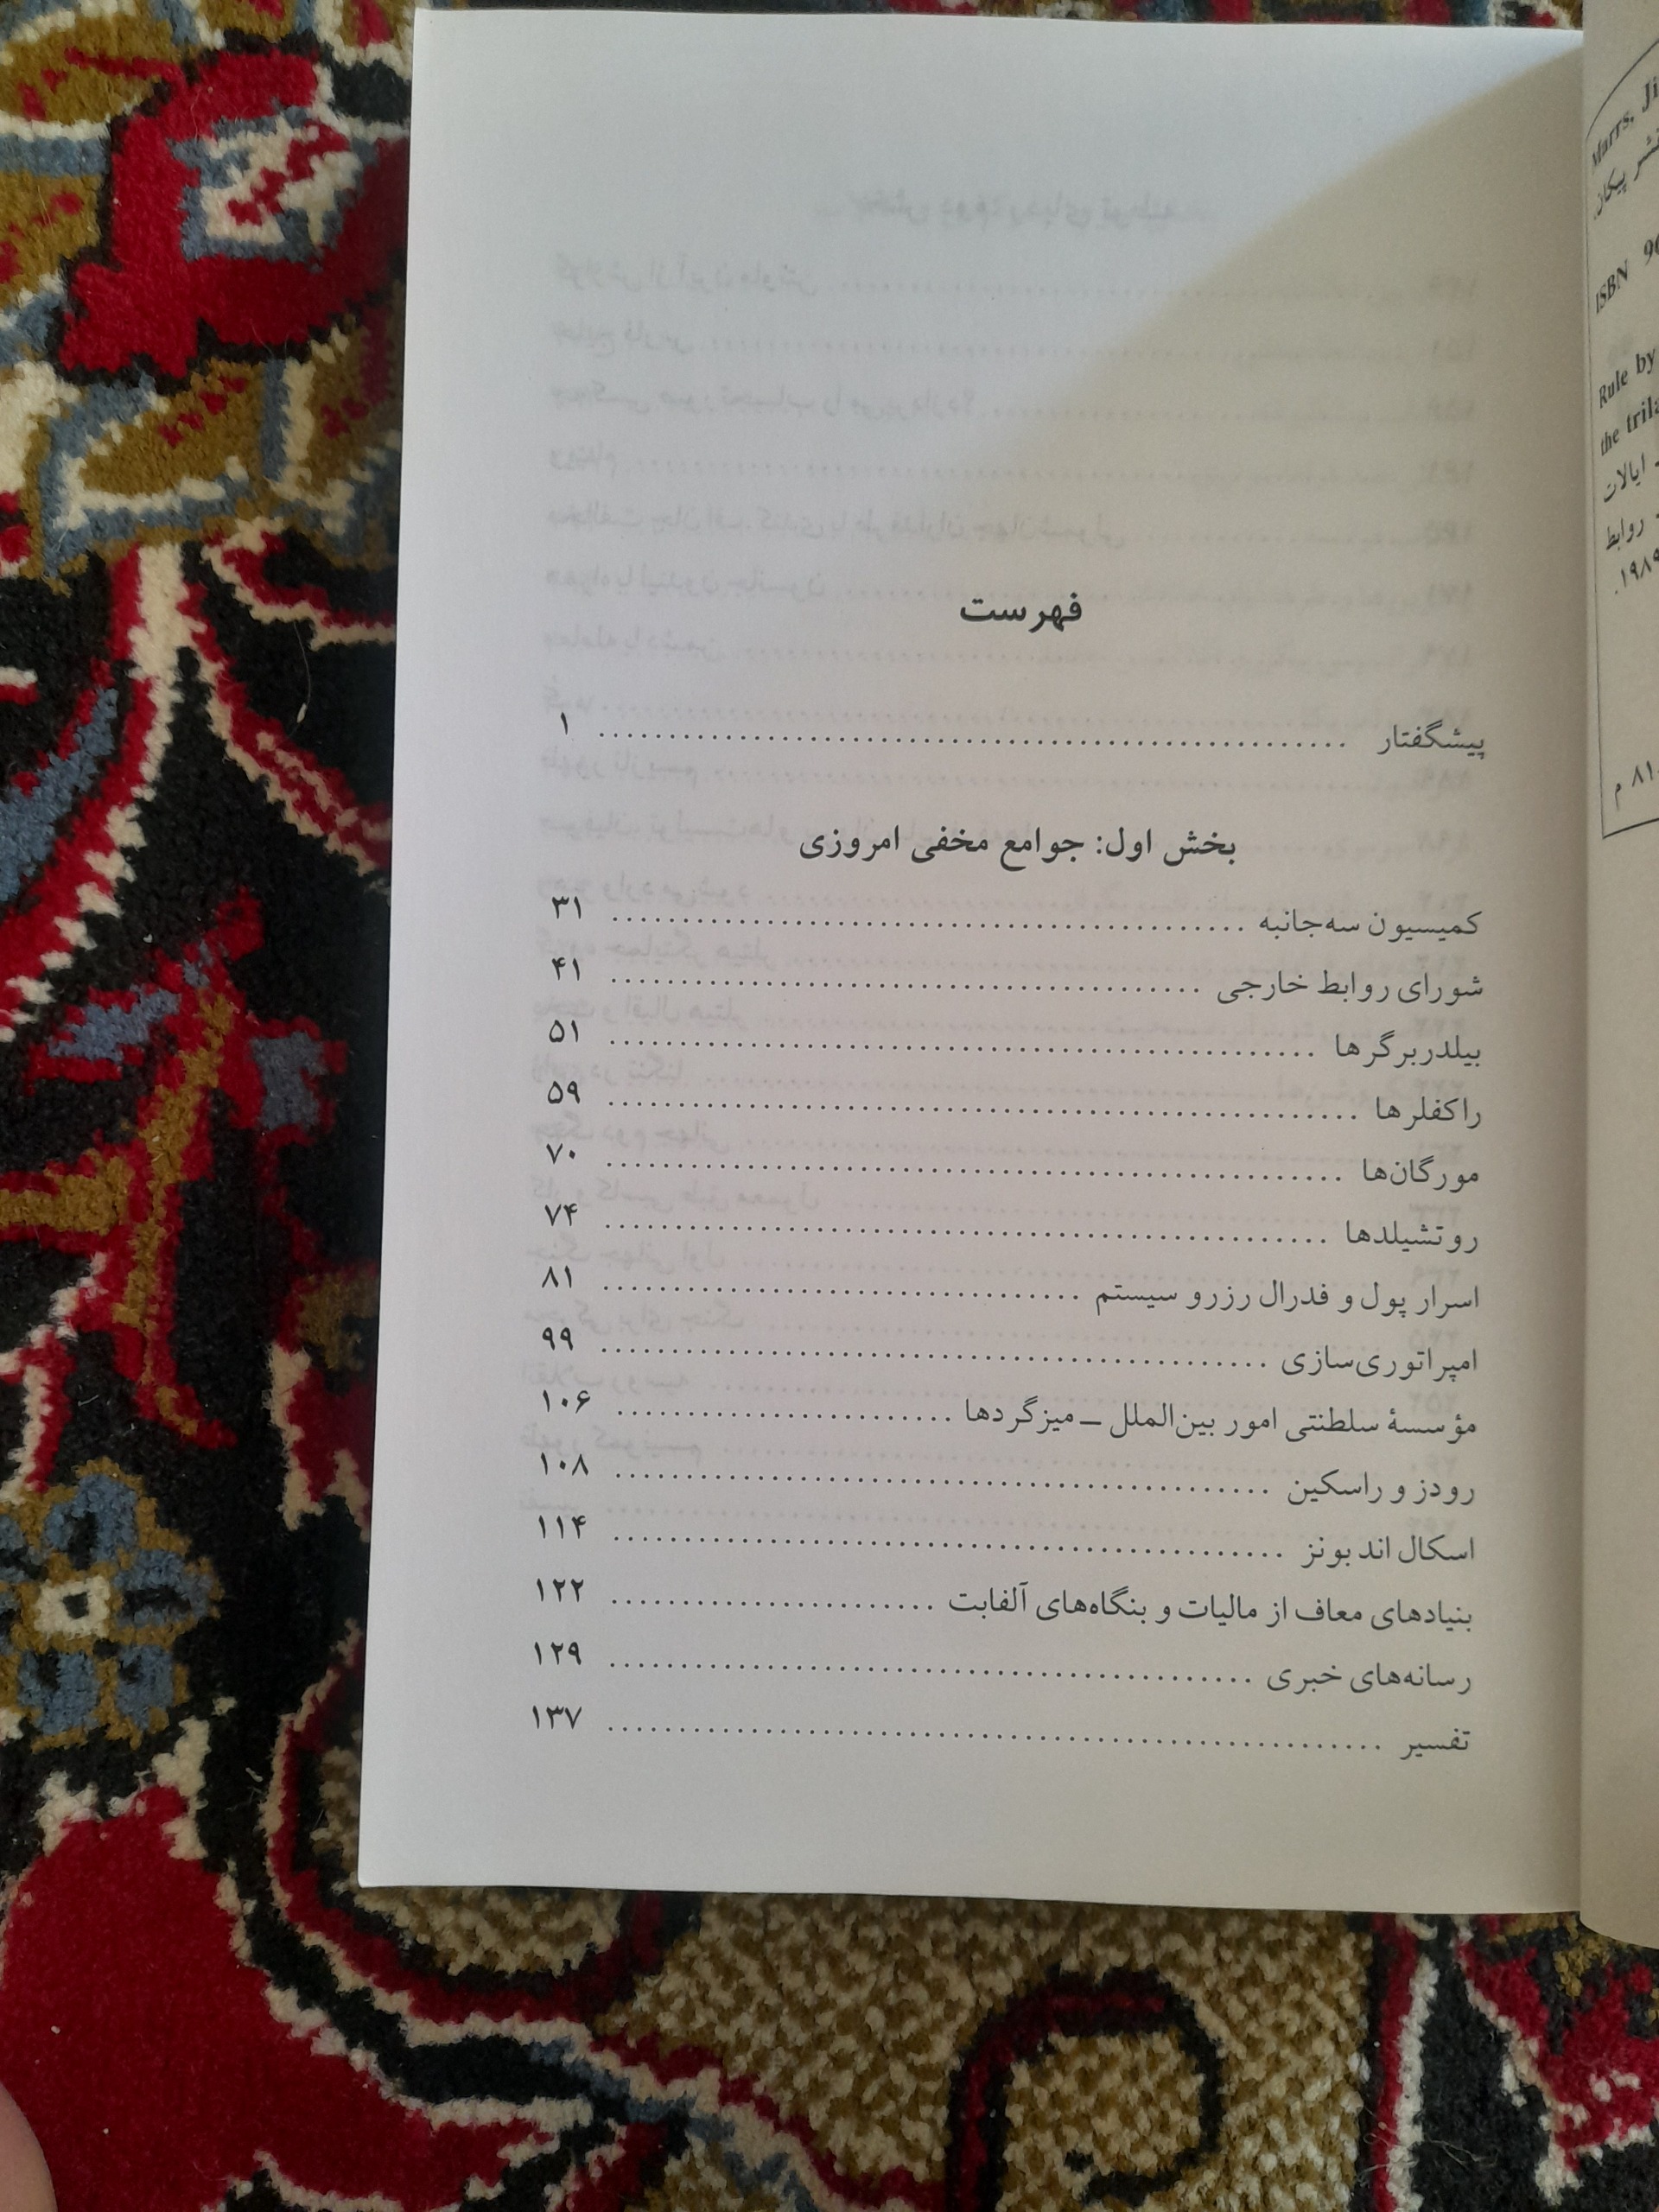 فهرست
پیشگفتار ۱
بخش اول: جوامع مخفی امروزی
کمیسیون سه‌جانبه ۳۱
شورای روابط خارجی ۴۱
بیلدربرگرها ۵۱
راکفلرها ۵۹
مورگان‌ها ۷۰
روتشیلدها ۷۴
اسرار پول و فدرال رزرو سیستم ۸۱
امپراتوری‌سازی ۹۹
مؤسسهٔ سلطنتی امور بین‌الملل ـ میزگردها ۱۰۶
رودز و راسکین ۱۰۸
اسکال اند بونز ۱۱۴
بنیادهای معاف از مالیات و بنگاه‌های آلفابت ۱۲۲
رسانه‌های خبری ۱۲۹
تفسیر ۱۳۷
Marrs, Ji
نشر پیکان
ISBN 96
Rule by
the trila
ایالات
روابط
۱۹۸۹.
۸۱ م